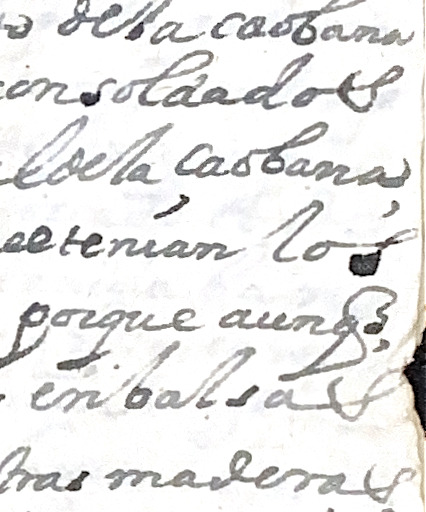 de la caobana
con soldados
de la caobana,
tenian los
porque aunq̃
en balsas
tras maderas